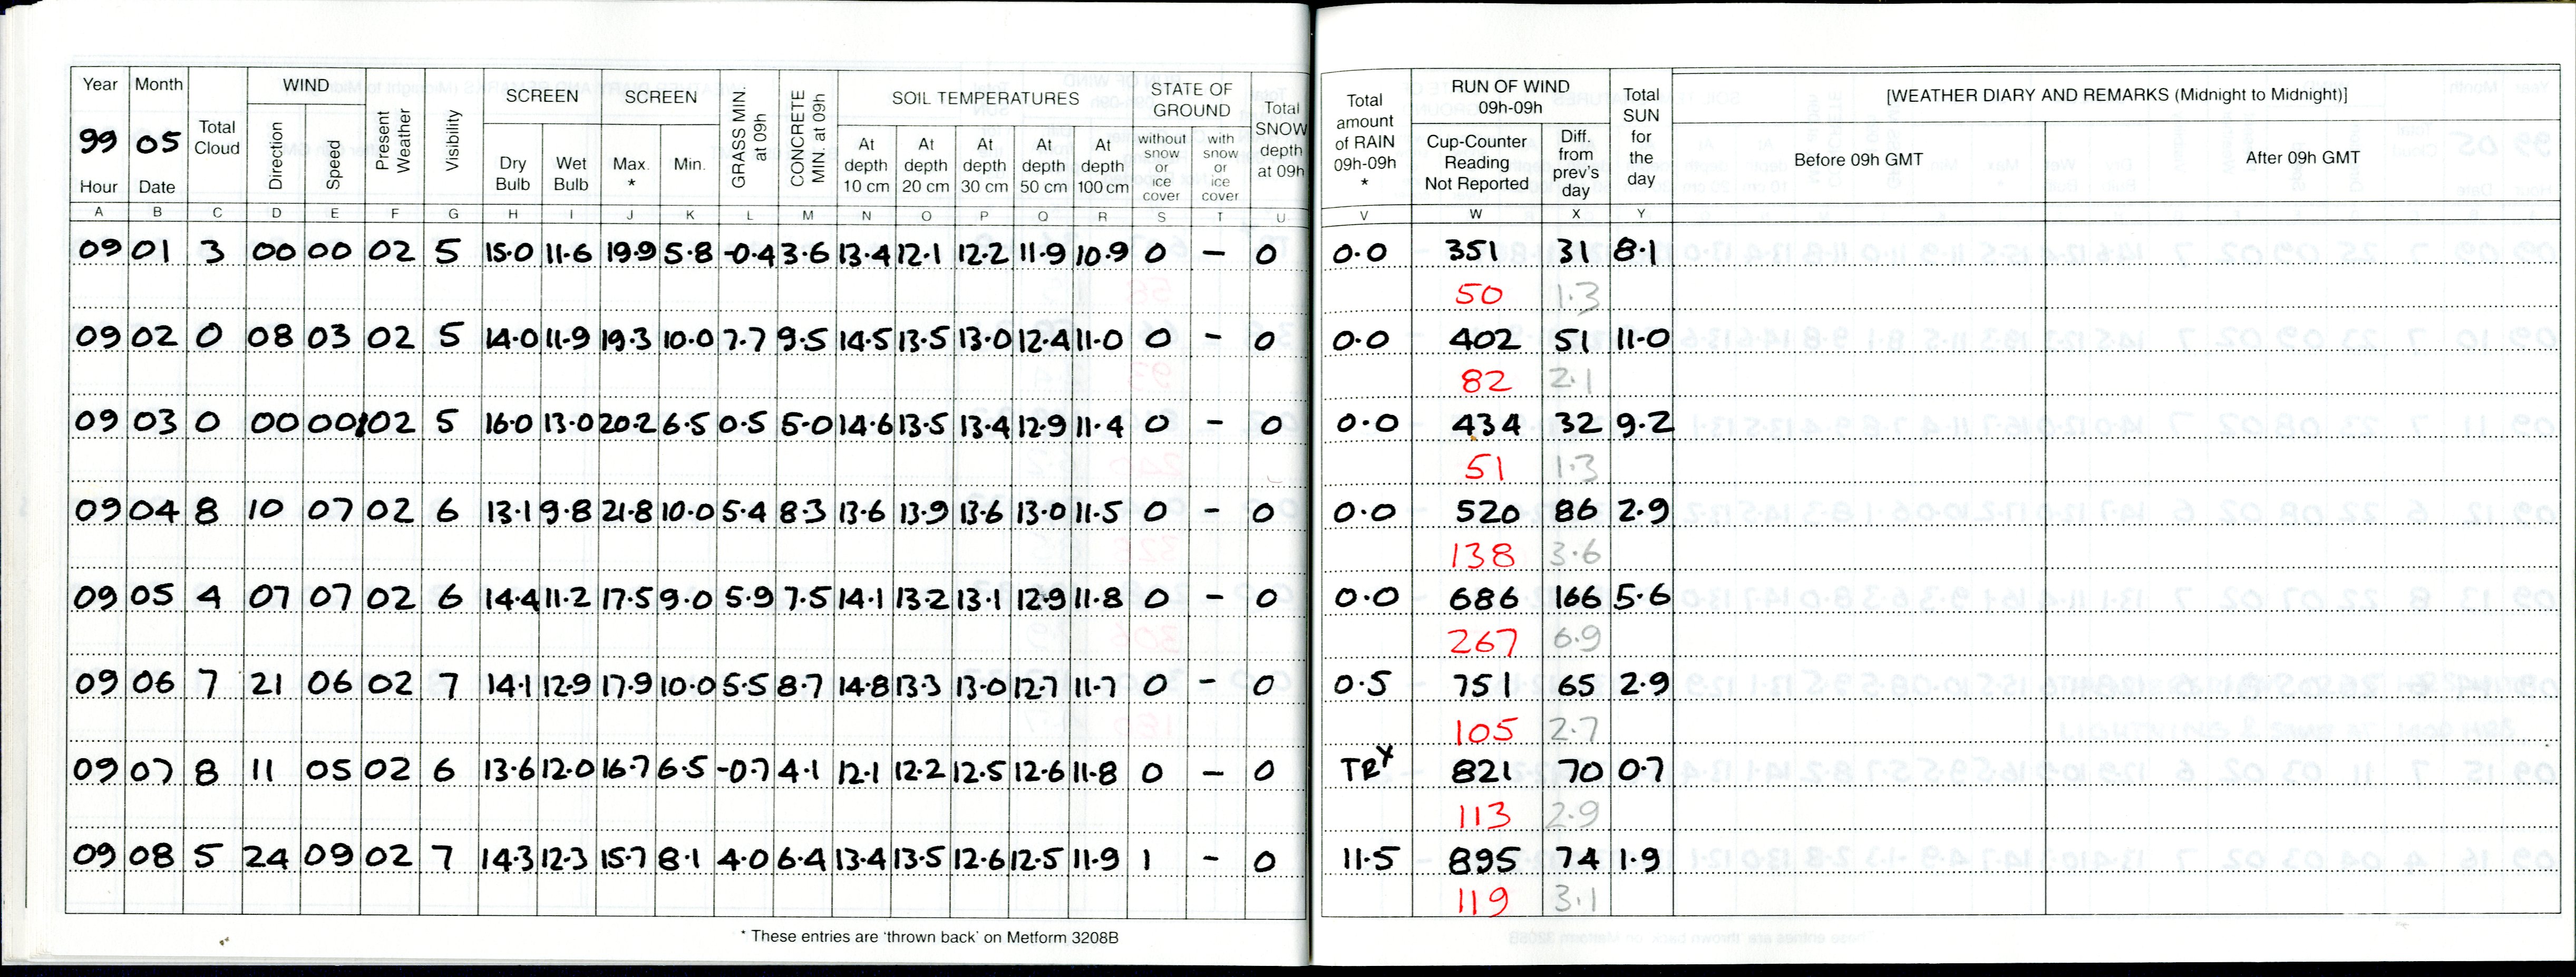 Year Month WIND SCREEN SCREEN SOIL TEMPERATURES STATE OF GROUND RUN OF WIND 09h-09h [WEATHER DIARY AND REMARKS (Midnight to Midnight)]
99 05 Total Cloud Direction Speed Present Weather Visibility Dry Bulb Wet Bulb Max. * Min. GRASS MIN. at 09h CONCRETE MIN. at 09h At depth 10 cm At depth 20 cm At depth 30 cm At depth 50 cm At depth 100 cm without snow or ice cover with snow or ice cover Total SNOW depth at 09h Total amount of RAIN 09h-09h * Cup-Counter Reading Not Reported Diff. from prev's day Total SUN for the day Before 09h GMT After 09h GMT
Hour Date
A B C D E F G H I J K L M N O P Q R S T U V W X Y
09 01 3 00 00 02 5 15.0 11.6 19.9 5.8 -0.4 3.6 13.4 12.1 12.2 11.9 10.9 0 - 0 0.0 351 31 8.1
50 1.3
09 02 0 08 03 02 5 14.0 11.9 19.3 10.0 7.7 9.5 14.5 13.5 13.0 12.4 11.0 0 - 0 0.0 402 51 11.0
82 2.1
09 03 0 00 00 02 5 16.0 13.0 20.2 6.5 0.5 5.0 14.6 13.5 13.4 12.9 11.4 0 - 0 0.0 434 32 9.2
51 1.3
09 04 8 10 07 02 6 13.1 9.8 21.8 10.0 5.4 8.3 13.6 13.9 13.6 13.0 11.5 0 - 0 0.0 520 86 2.9
138 3.6
09 05 4 07 07 02 6 14.4 11.2 17.5 9.0 5.9 7.5 14.1 13.2 13.1 12.9 11.8 0 - 0 0.0 686 166 5.6
267 6.9
09 06 7 21 06 02 7 14.1 12.9 17.9 10.0 5.5 8.7 14.8 13.3 13.0 12.7 11.7 0 - 0 0.5 751 65 2.9
105 2.7
09 07 8 11 05 02 6 13.6 12.0 16.7 6.5 -0.7 4.1 12.1 12.2 12.5 12.6 11.8 0 - 0 TR 821 70 0.7
113 2.9
09 08 5 24 09 02 7 14.3 12.3 15.7 8.1 4.0 6.4 13.4 13.5 12.6 12.5 11.9 1 - 0 11.5 895 74 1.9
119 3.1
* These entries are 'thrown back' on Metform 3208B